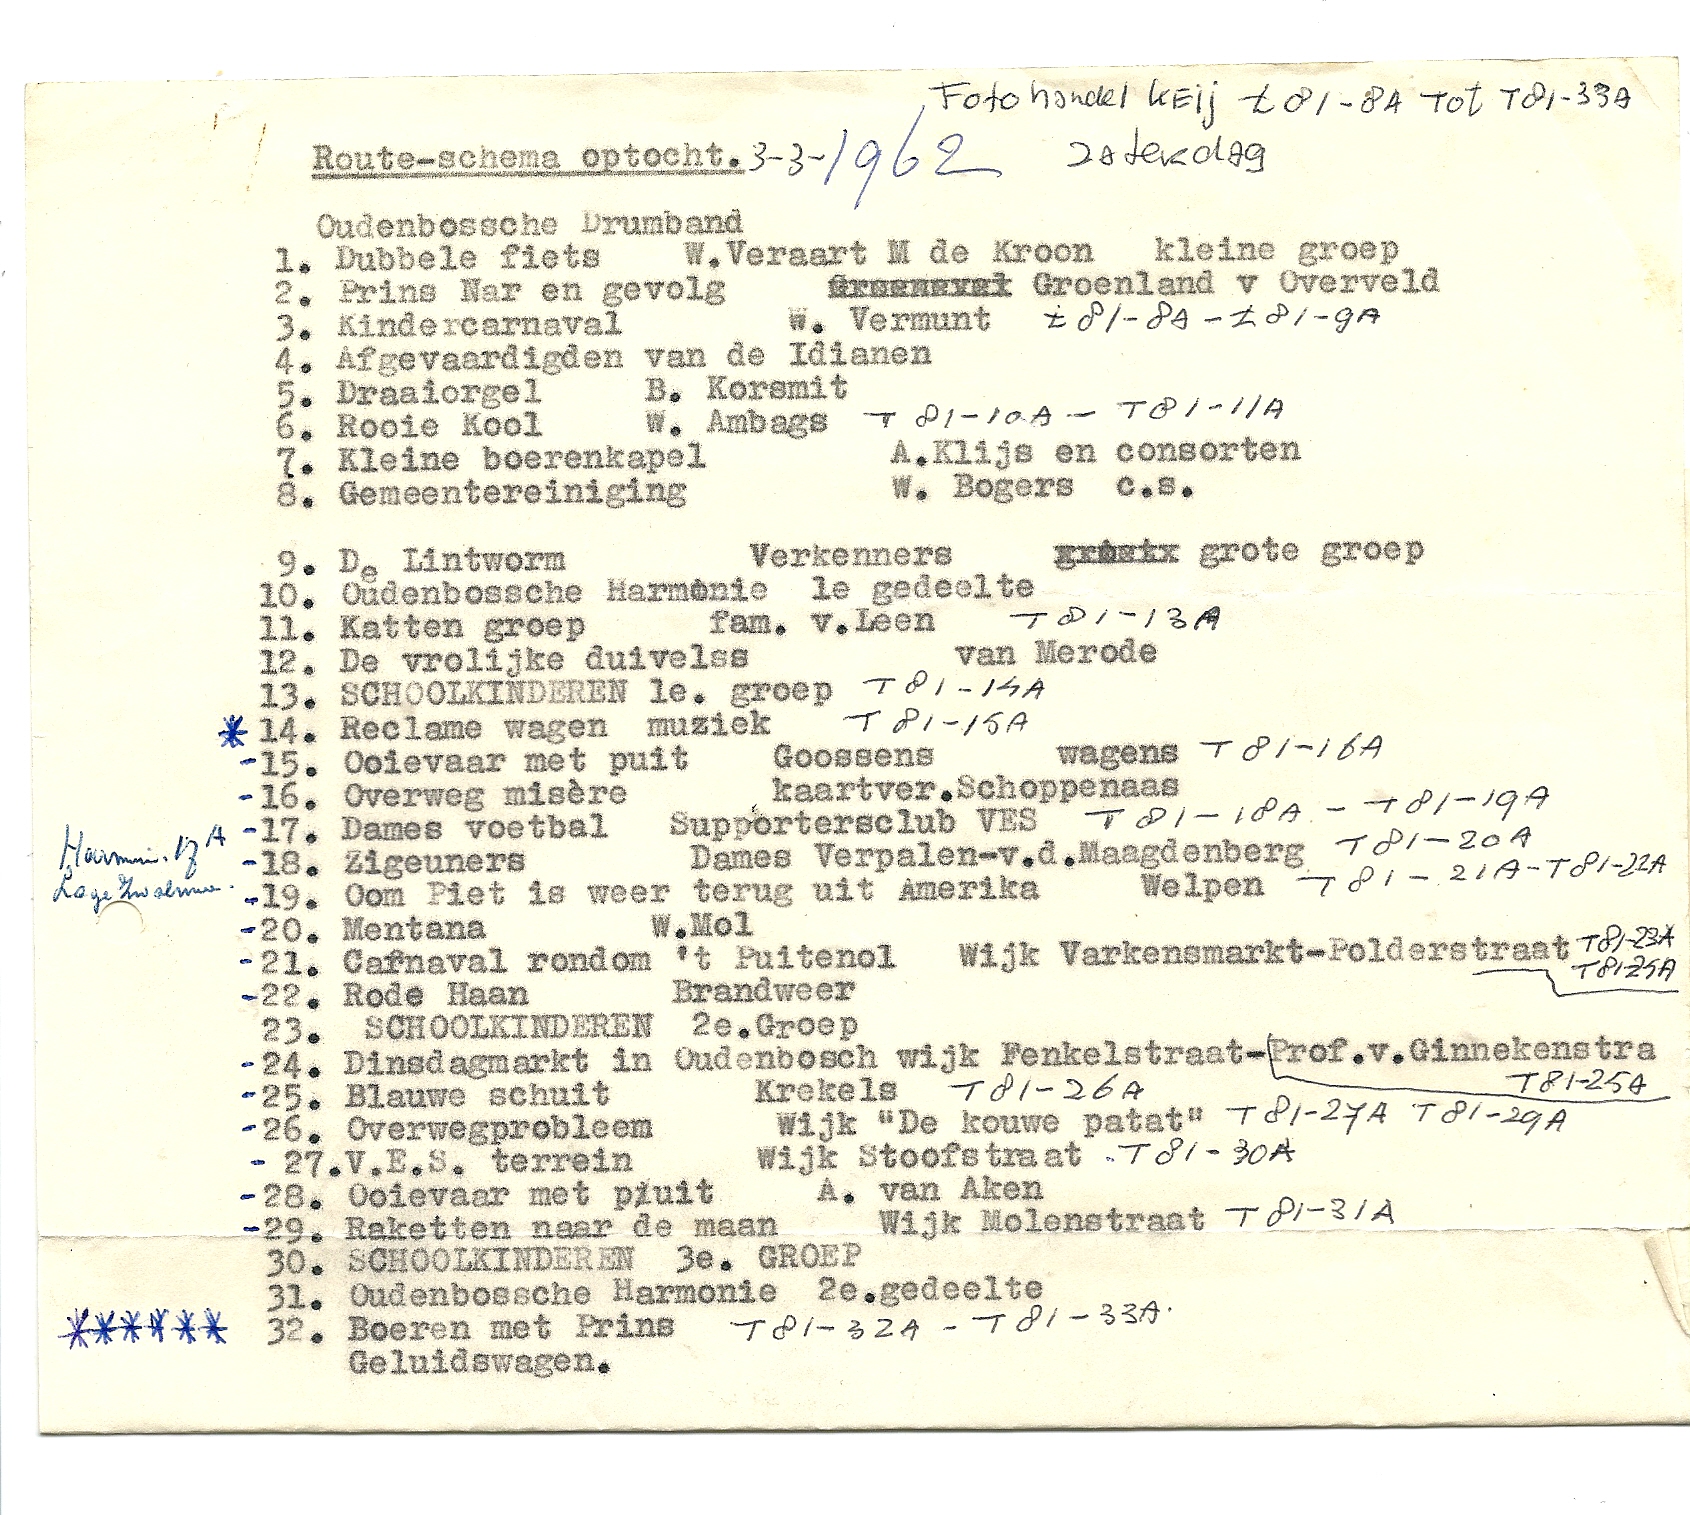 Fotohandel kEij t81-8A Tot T81-33A
Route-schema optocht. 3-3-1962 zaterdag
Oudenbossche Drumband
1. Dubbele fiets W.Veraart M de Kroon kleine groep
2. Prins Nar en gevolg Groenland v Overveld
3. Kindercarnaval W. Vermunt t81-8A-t81-9A
4. Afgevaardigden van de Idianen
5. Draaiorgel B. Korsmit
6. Rooie Kool W. Ambags T81-10A - T81-11A
7. Kleine boerenkapel A.Klijs en consorten
8. Gemeentereiniging W. Bogers c.s.
9. De Lintworm Verkenners grote groep
10. Oudenbossche Harmonie 1e gedeelte
11. Katten groep fam. v.Leen T81-13A
12. De vrolijke duivelss van Merode
13. SCHOOLKINDEREN 1e. groep T81-14A
* 14. Reclame wagen muziek T81-15A
-15. Ooievaar met puit Goossens wagens T81-16A
-16. Overweg misère kaartver.Schoppenaas
-17. Dames voetbal Supportersclub VES T81-18A - T81-19A
17A
-18. Zigeuners Dames Verpalen-v.d.Maagdenberg T81-20A
-19. Oom Piet is weer terug uit Amerika Welpen T81-21A-T81-22A
-20. Mentana W.Mol
-21. Carnaval rondom 't Puitenol Wijk Varkensmarkt-Polderstraat T81-23A
T81-25A
-22. Rode Haan Brandweer
23. SCHOOLKINDEREN 2e.Groep
-24. Dinsdagmarkt in Oudenbosch wijk Fenkelstraat-Prof.v.Ginnekenstra
T81-25A
-25. Blauwe schuit Krekels T81-26A
-26. Overwegprobleem Wijk "De kouwe patat" T81-27A T81-29A
- 27.V.E.S. terrein Wijk Stoofstraat .T81-30A
-28. Ooievaar met p/uit A. van Aken
-29. Raketten naar de maan Wijk Molenstraat T81-31A
30. SCHOOLKINDEREN 3e. GROEP
31. Oudenbossche Harmonie 2e.gedeelte
****** 32. Boeren met Prins T81-32A - T81-33A.
Geluidswagen.